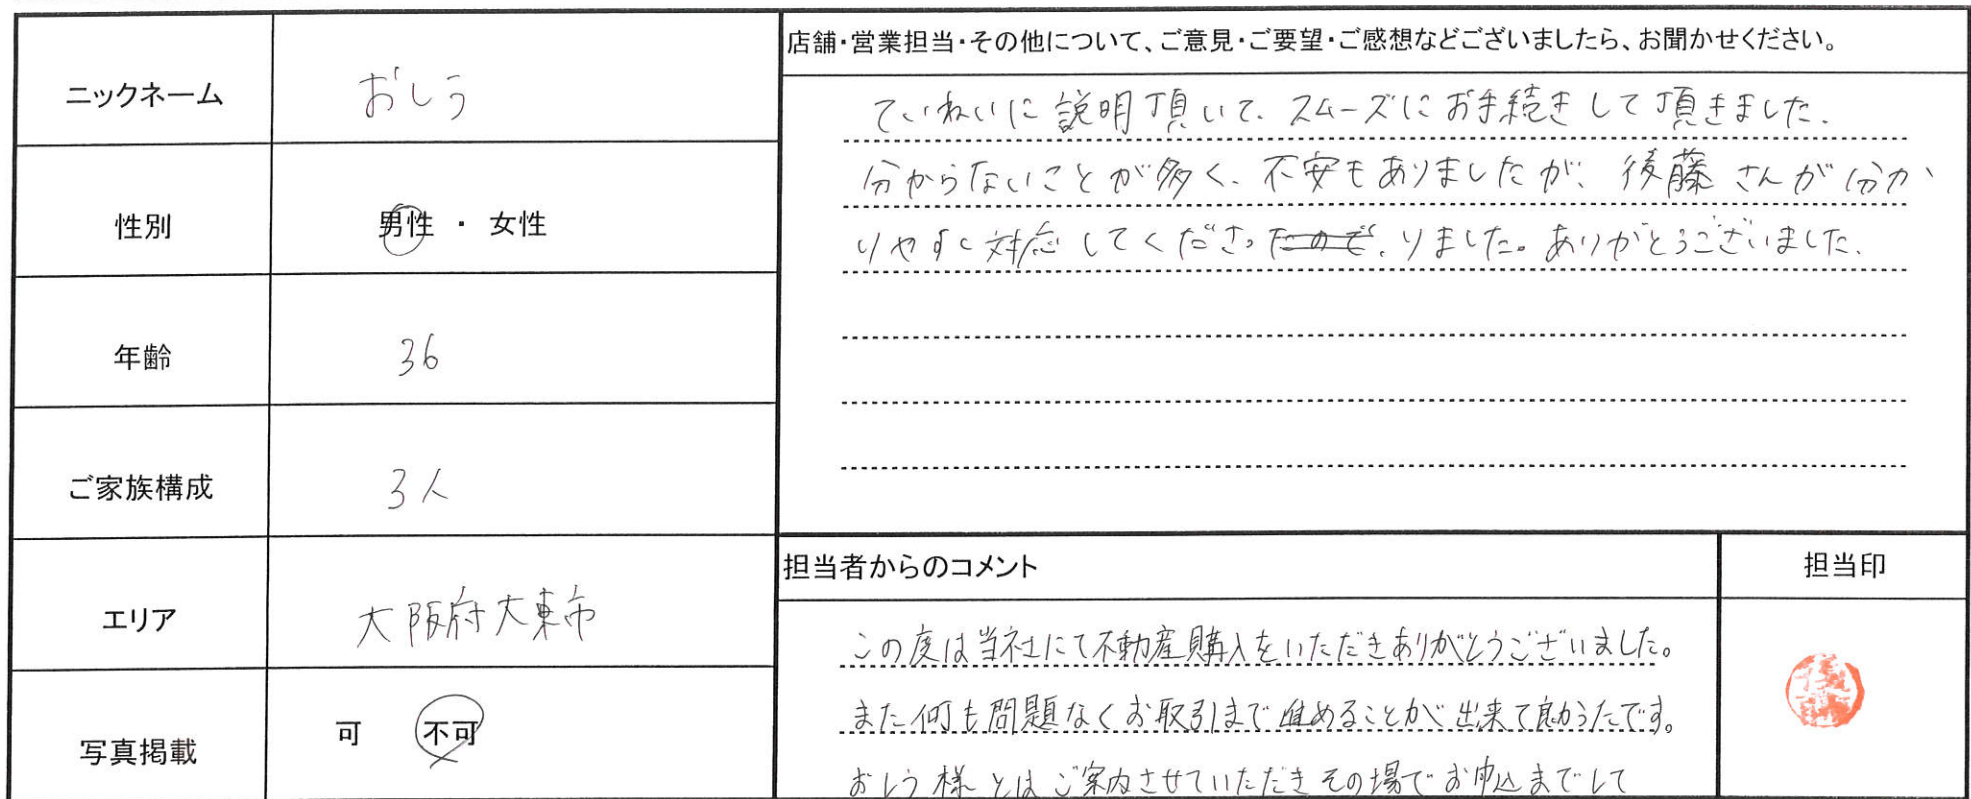 ニックネーム
おしう
性別
男性 ・ 女性
年齢
36
ご家族構成
3人
エリア
大阪府大東市
写真掲載
可 不可
店舗・営業担当・その他について、ご意見・ご要望・ご感想などございましたら、お聞かせください。
ていねいに説明頂いて、スムーズにお手続きして頂きました。
分からないことが多く、不安もありましたが、後藤さんが分か
りやすく対応してくださったので、りました。ありがとうございました。
担当者からのコメント
この度は当社にて不動産購入をいただきありがとうございました。
また何も問題なくお取引まで進めることが出来て良かったです。
おしう様とはご案内させていただきその場でお申込までして
担当印
後藤